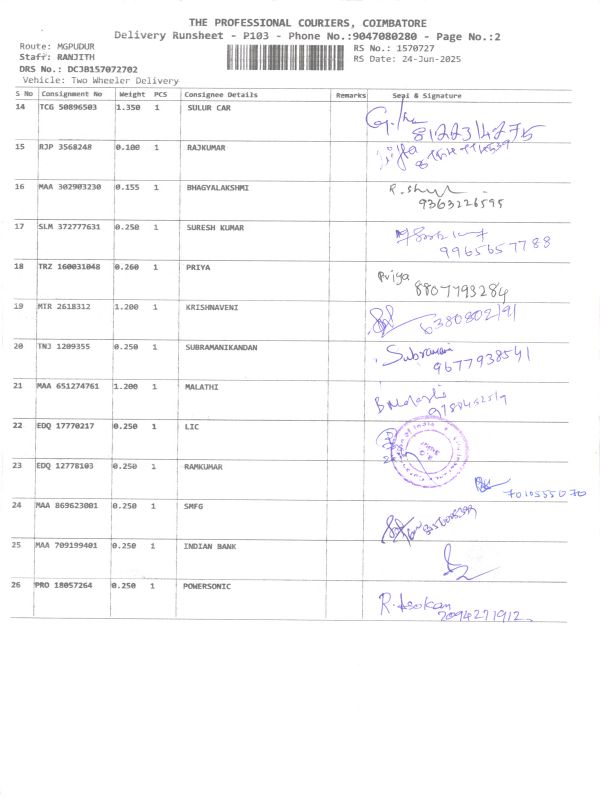 THE PROFESSIONAL COURIERS, COIMBATORE
Delivery Runsheet - P103 - Phone No.:9047080280 - Page No.:2
Route: MGPUDUR
Staff: RANJITH
DRS No.: DCJB157072702
Vehicle: Two Wheeler Delivery
RS No.: 1570727
RS Date: 24-Jun-2025
S No Consignment No Weight PCS Consignee Details Remarks Seal & Signature
14 TCG 50896503 1.350 1 SULUR CAR
8122314275
15 RJP 3568248 0.100 1 RAJKUMAR
16 MAA 302903230 0.155 1 BHAGYALAKSHMI
9363226595
17 SLM 372777631 0.250 1 SURESH KUMAR
9965657788
18 TRZ 160031048 0.260 1 PRIYA
Priya
8807793284
19 MTR 2618312 1.200 1 KRISHNAVENI
20 TNJ 1209355 0.250 1 SUBRAMANIKANDAN
9677938541
21 MAA 651274761 1.200 1 MALATHI
B Malathi
22 EDQ 17770217 0.250 1 LIC
23 EDQ 12778103 0.250 1 RAMKUMAR
7010555070
24 MAA 869623001 0.250 1 SMFG
25 MAA 709199401 0.250 1 INDIAN BANK
26 PRO 18057264 0.250 1 POWERSONIC
R. Asokan